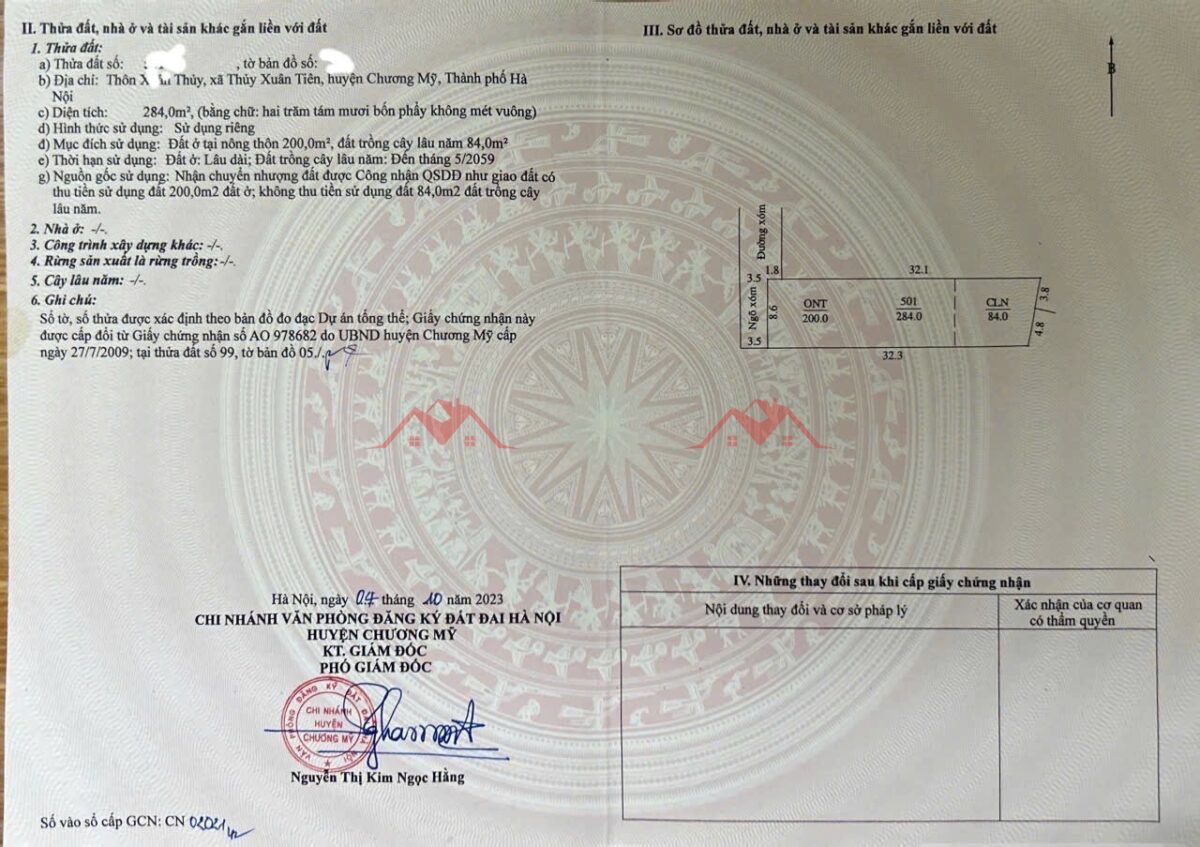 II. Thửa đất, nhà ở và tài sản khác gắn liền với đất
1. Thửa đất:
a) Thửa đất số: , tờ bản đồ số:
b) Địa chỉ: Thôn Thủy, xã Thủy Xuân Tiên, huyện Chương Mỹ, Thành phố Hà
Nội
c) Diện tích: 284,0m², (bằng chữ: hai trăm tám mươi bốn phẩy không mét vuông)
d) Hình thức sử dụng: Sử dụng riêng
đ) Mục đích sử dụng: Đất ở tại nông thôn 200,0m², đất trồng cây lâu năm 84,0m²
e) Thời hạn sử dụng: Đất ở: Lâu dài; Đất trồng cây lâu năm: Đến tháng 5/2059
g) Nguồn gốc sử dụng: Nhận chuyển nhượng đất được Công nhận QSDĐ như giao đất có
thu tiền sử dụng đất 200,0m2 đất ở; không thu tiền sử dụng đất 84,0m2 đất trồng cây
lâu năm.
2. Nhà ở: -/-.
3. Công trình xây dựng khác: -/-.
4. Rừng sản xuất là rừng trồng: -/-.
5. Cây lâu năm: -/-.
6. Ghi chú:
Số tờ, số thửa được xác định theo bản đồ đo đạc Dự án tổng thể; Giấy chứng nhận này
được cấp đổi từ Giấy chứng nhận số AO 978682 do UBND huyện Chương Mỹ cấp
ngày 27/7/2009; tại thửa đất số 99, tờ bản đồ 05./.
Hà Nội, ngày 04 tháng 10 năm 2023
CHI NHÁNH VĂN PHÒNG ĐĂNG KÝ ĐẤT ĐAI HÀ NỘI
HUYỆN CHƯƠNG MỸ
KT. GIÁM ĐỐC
PHÓ GIÁM ĐỐC
VĂN PHÒNG ĐĂNG KÝ ĐẤT ĐAI HÀ NỘI
CHI NHÁNH
HUYỆN
CHƯƠNG MỸ
Nguyễn Thị Kim Ngọc Hằng
Số vào sổ cấp GCN: CN 02021
III. Sơ đồ thửa đất, nhà ở và tài sản khác gắn liền với đất
B
Đường xóm
3.5
1.8
32.1
Ngõ xóm
8.6
ONT
200.0
501
284.0
CLN
84.0
3.8
4.8
3.5
32.3
IV. Những thay đổi sau khi cấp giấy chứng nhận
Nội dung thay đổi và cơ sở pháp lý
Xác nhận của cơ quan
có thẩm quyền